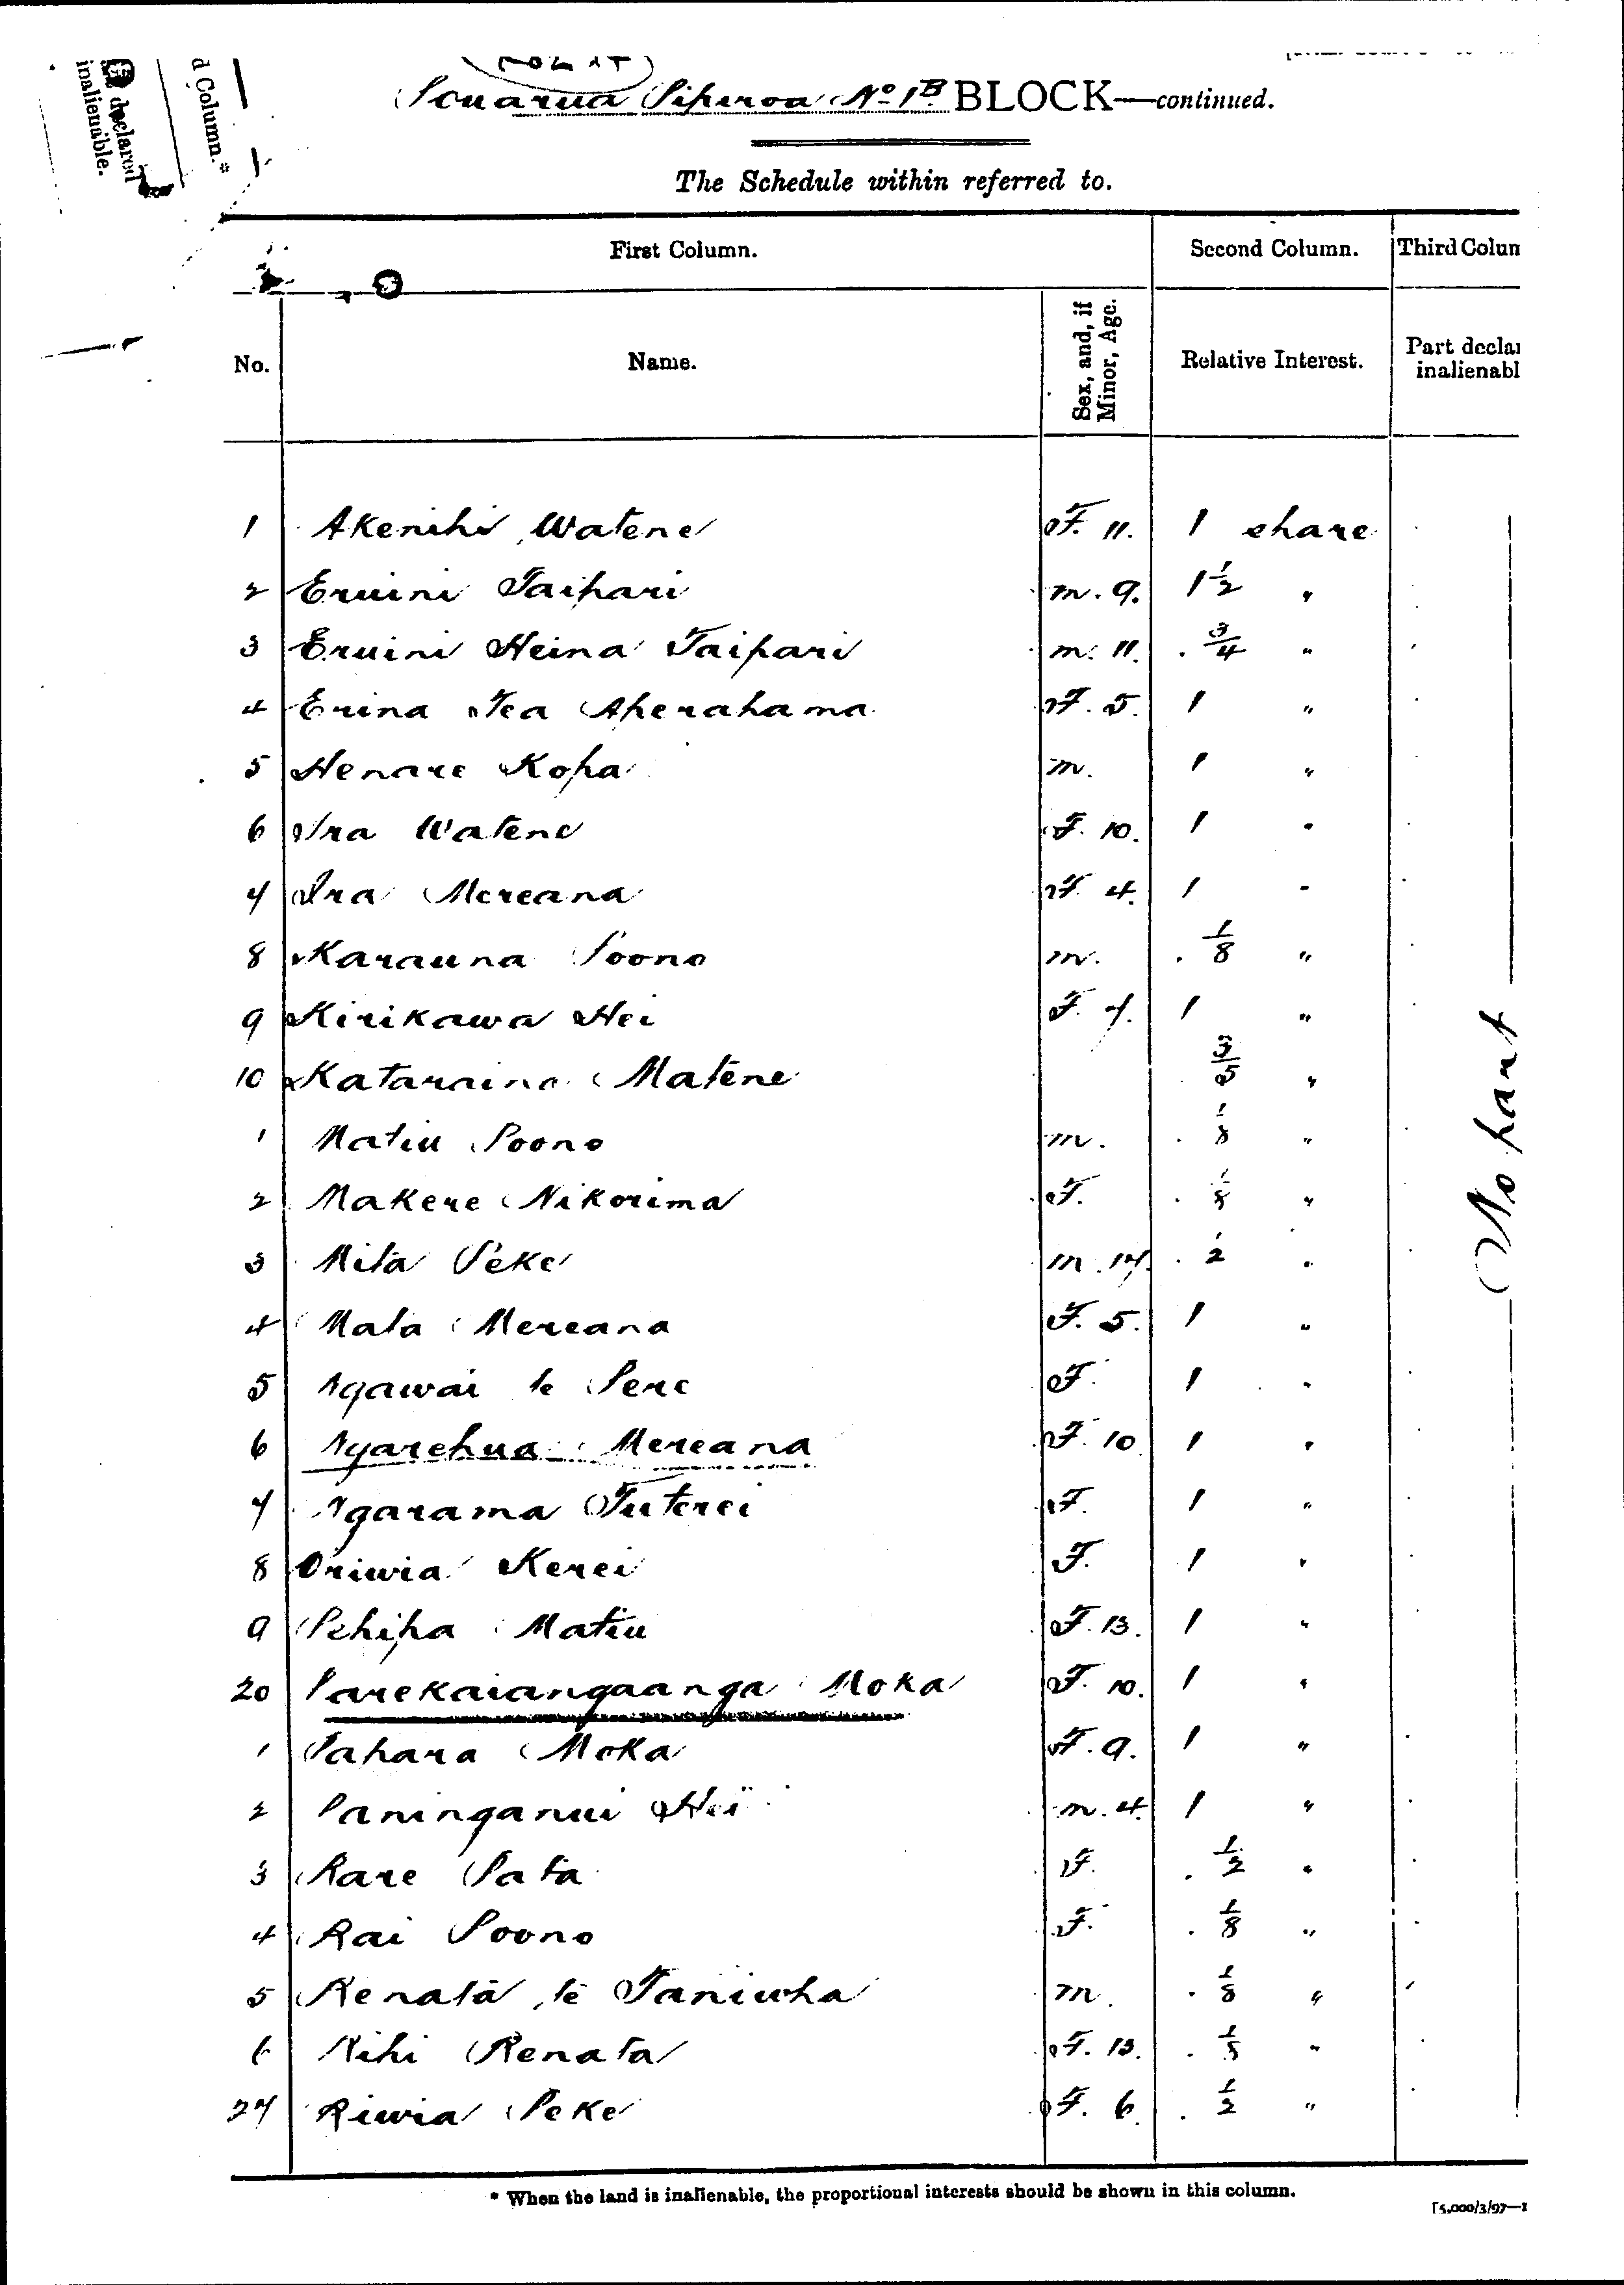 d Column.*
declared
inalienable.
Pouarua Pipiroa No 1B BLOCK—continued.
The Schedule within referred to.
First Column. Second Column. Third Colum
No. Name. Sex, and, if Minor, Age. Relative Interest. Part declar inalienabl
1 Akenihi Watene F. 11. 1 share
2 Eruini Taipari m. 9. 1 1/2 "
3 Eruini Heina Taipari m. 11. 3/4 "
4 Erina Tea Aperahama F. 5. 1 "
5 Henare Kopa m. 1 "
6 Ira Watene F. 10. 1 "
7 Ira Mereana F. 4. 1 "
8 Karauna Poono m. 1/8 "
9 Kirikawa Hei F. 7. 1 "
10 Kataraina Matene 3/5 "
1 Matiu Poono m. 1/8 "
2 Makere Nikorima F. 1/8 "
3 Mita Peke m. 14. 1/2 "
4 Mata Mereana F. 5. 1 "
5 Ngawai te Pere F. 1 "
6 Ngarehua Mereana F. 10 1 "
7 Ngarama Tuterei F. 1 "
8 Oriwia Kerei F. 1 "
9 Pehipa Matiu F. 13. 1 "
20 Parekaiangaanga Moka F. 10. 1 "
1 Pahara Moka F. 9. 1 "
2 Paninganui Hei m. 4. 1 "
3 Rare Pata F. 1/2 "
4 Rai Poono F. 1/8 "
5 Renata te Taniwha m. 1/8 "
6 Rihi Renata F. 13. 1/8 "
27 Riwia Peke F. 6. 1/2 "
No part
* When the land is inalienable, the proportional interests should be shown in this column.
[5,000/3/97—1